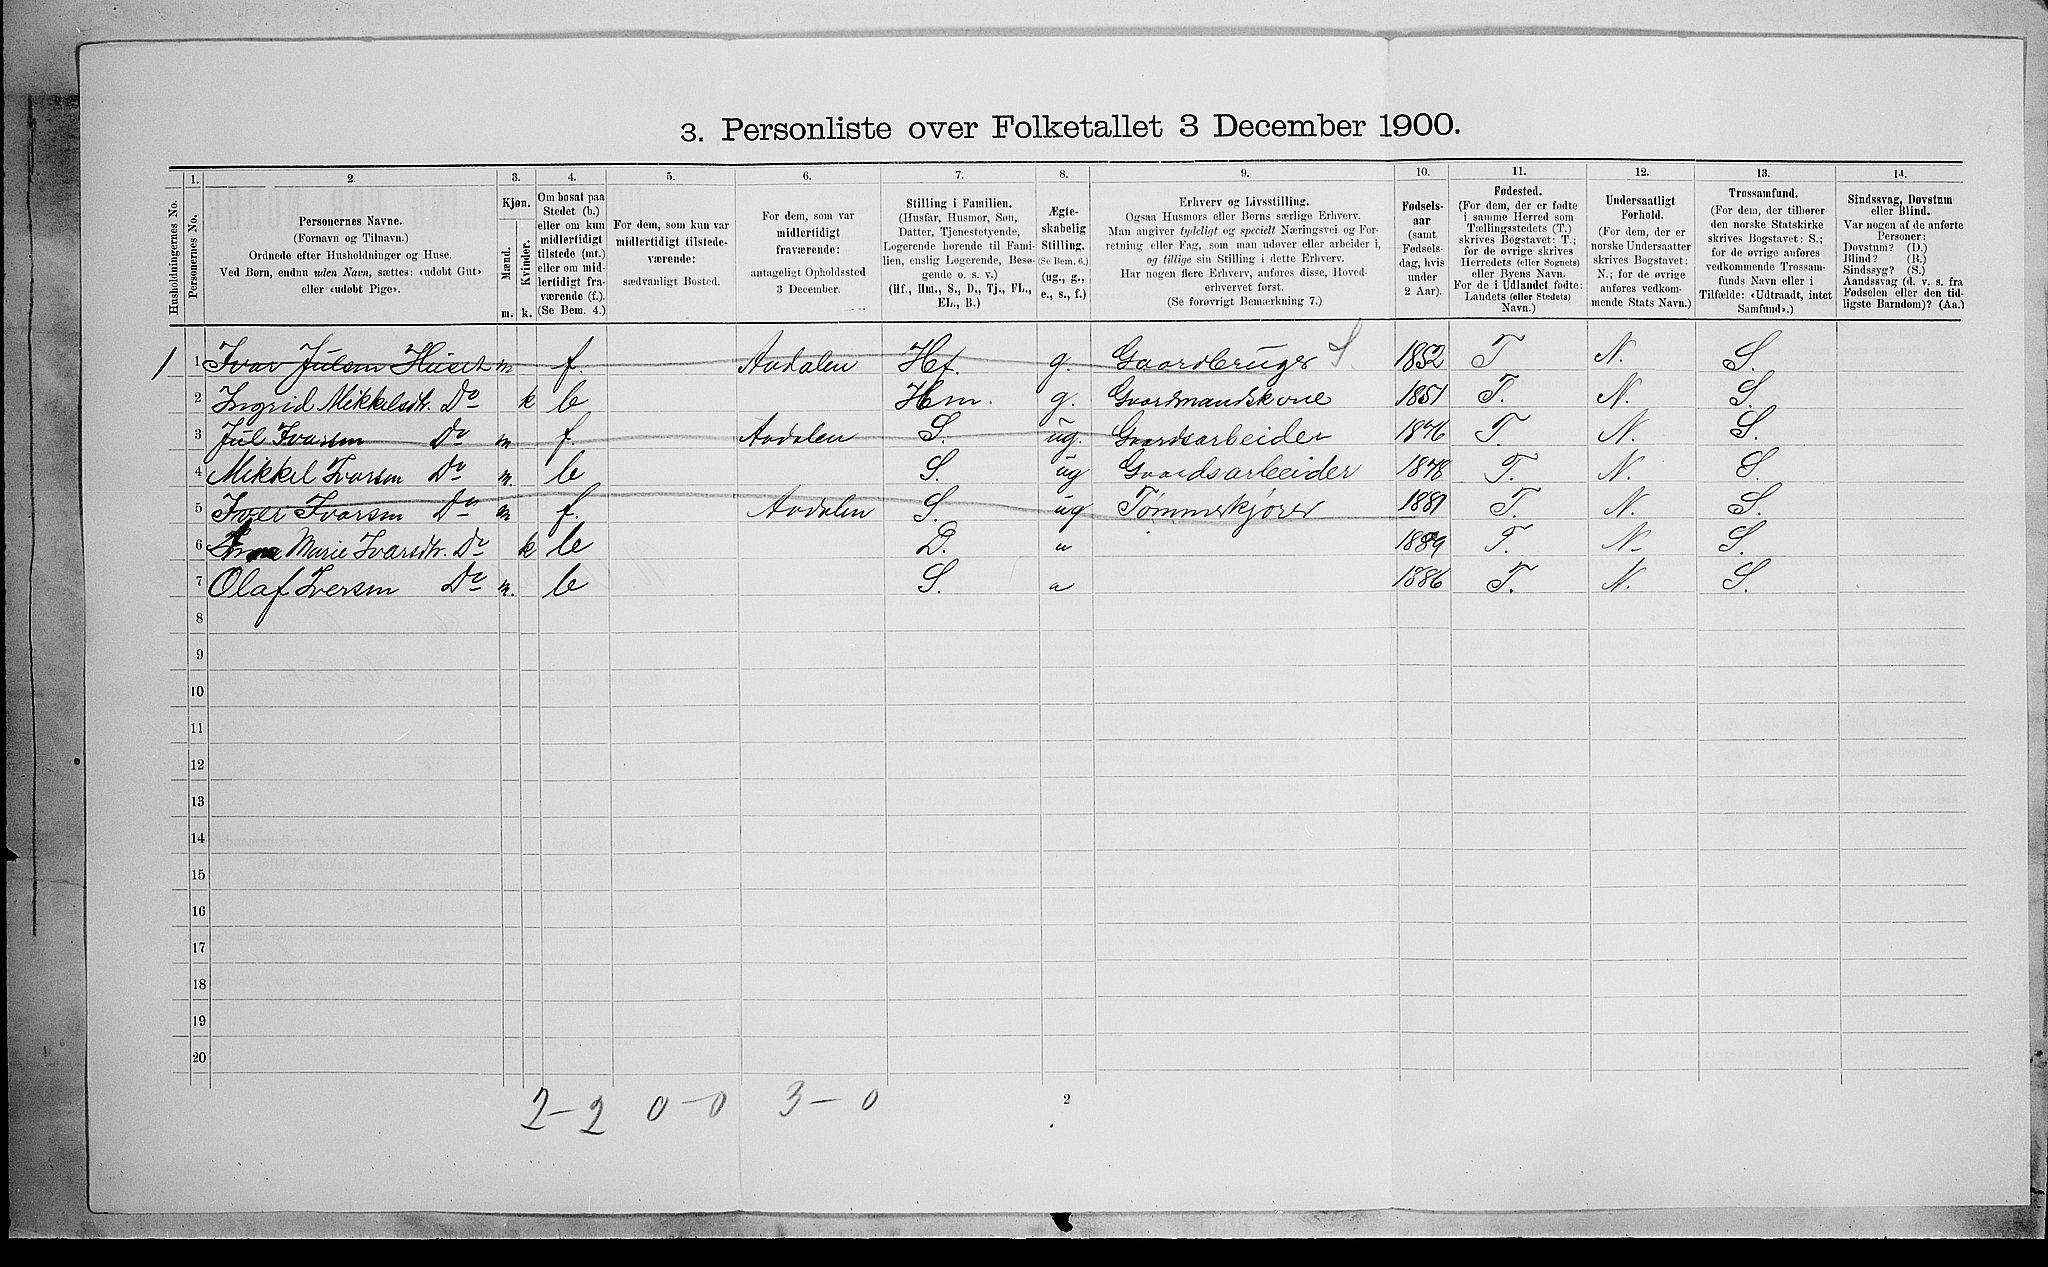 3. Personliste over Folketallet 3 December 1900.
Husholdningernes No.
1.
Personernes No.
2.
Personernes Navne.
(Fornavn og Tilnavn.)
Ordnede efter Husholdninger og Huse.
Ved Børn, endnu uden Navn, sættes: «udøbt Gut»
eller «udøbt Pige».
3.
Kjøn.
Mænd.
Kvinder.
m. k.
4.
Om bosat paa
Stedet (b.)
eller om kun
midlertidigt
tilstede (mt.)
eller om mid-
lertidigt fra-
værende (f.).
(Se Bem. 4.)
5.
For dem, som kun var
midlertidigt tilstede-
værende:
sædvanligt Bosted.
6.
For dem, som var
midlertidigt
fraværende:
antageligt Opholdssted
3 December.
7.
Stilling i Familien.
(Husfar, Husmor, Søn,
Datter, Tjenestetyende,
Logerende hørende til Fami-
lien, enslig Logerende, Besø-
gende o. s. v.)
(Hf., Hm., S., D., Tj., FL.,
EL., B.)
8.
Ægte-
skabelig
Stilling.
(Se Bem. 6.)
(ug., g.,
e., s., f.)
9.
Erhverv og Livsstilling.
Ogsaa Husmors eller Børns særlige Erhverv.
Man angiver tydeligt og specielt Næringsvei og For-
retning eller Fag, som man udøver eller arbeider i,
og tillige sin Stilling i dette Erhverv.
Har nogen flere Erhverv, anføres disse, Hoved-
erhvervet først.
(Se forøvrigt Bemærkning 7.)
10.
Fødsels-
aar
(samt
Fødsels-
dag, hvis
under
2 Aar).
11.
Fødested.
(For dem, der er fødte
i samme Herred som
Tællingsstedets (T.)
skrives Bogstavet: T.;
for de øvrige skrives
Herredets (eller Sognets)
eller Byens Navn.
For de i Udlandet fødte:
Landets (eller Stedets)
Navn.)
12.
Undersaatligt
Forhold.
(For dem, der er
norske Undersaatter
skrives Bogstavet:
N.; for de øvrige
anføres vedkom-
mende Stats Navn.)
13.
Trossamfund.
(For dem, der tilhører
den norske Statskirke
skrives Bogstavet: S.;
for de øvrige anføres
vedkommende Trossam-
funds Navn eller i
Tilfælde: «Udtraadt, intet
Samfund».)
14.
Sindssvag, Døvstum
eller Blind.
Var nogen af de anførte
Personer:
Døvstum? (D.)
Blind? (B.)
Sindssyg? (S.)
Aandssvag (d. v. s. fra
Fødselen eller den tid-
ligste Barndom)? (Aa.)
1 1 Ivar Julsen Huset m f. Aadalen Hf. g. Gaardbruger S. 1852 T N. S.
2 Ingrid Mikkelsdtr. Do k b Hm. g. Gaardmandskone 1851 T. N. S.
3 Jul Ivarsen Do m f. Aadalen S. ug. Gaardsarbeider 1876 T. N. S.
4 Mikkel Ivarsen Do m. b S. ug Gaardsarbeider 1878 T. N. S.
5 Iver Ivarsen Do m f. Aadalen S. ug Tømmerkjører 1881 T. N. S.
6 Marie Ivarsdtr. Do k b D. u 1889 T. N. S.
7 Olaf Iversen Do m. b S. u 1886 T. N. S.
8
9
10
11
12
13
14
15
16
17
18
19
20
2 - 2 0 - 0 3 - 0
2